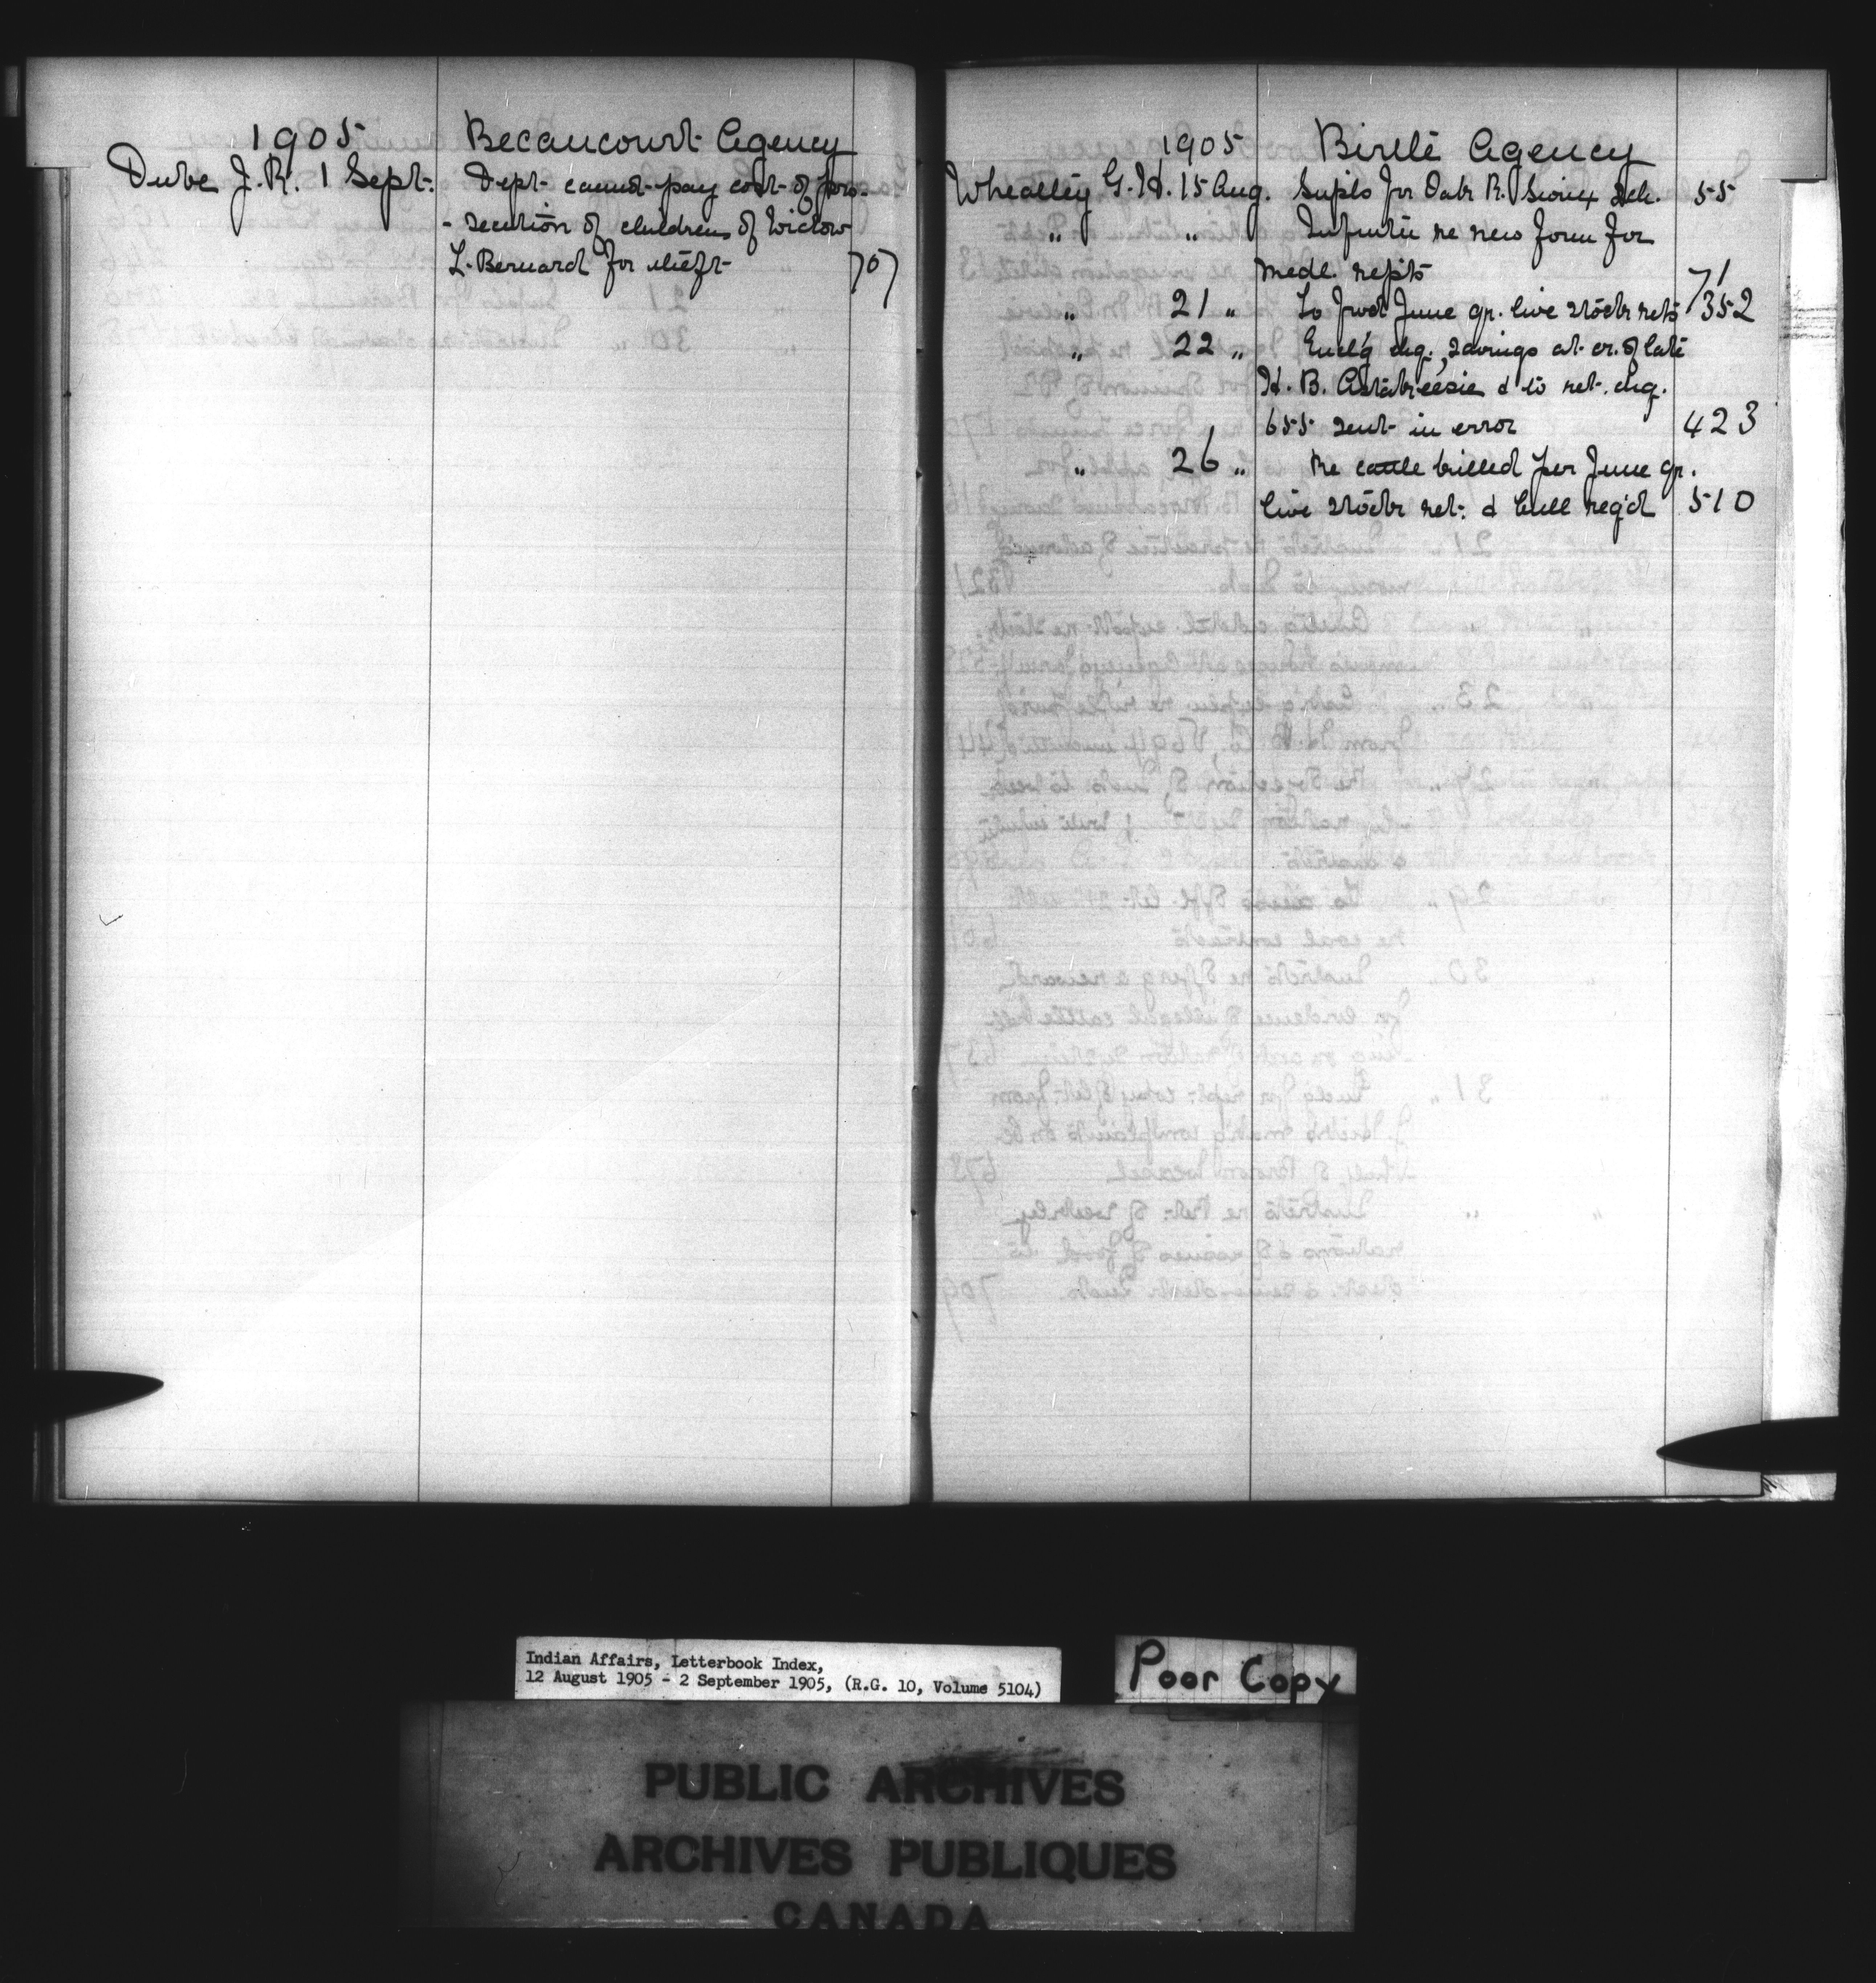 1905 Becancourt Agency
Dube J.R. 1 Sept. Dept. cannot pay cost of pro-
- secution of children of Widow
L. Bernard for theft 707
1905 Birtle Agency
Wheatley G.H. 15 Aug. Supls for Oak R. Sioux Sch. 55
" " re new form for
medl. repts 71
" 21 " To fwd June qr. live stock rets 352
" 22 " Encl'g chq., savings at cr. of late
H.B. & to ret. chq.
655 sent in error 423
" 26 " Re cattle killed per June qr.
live stock ret. & bull req'd 510
Indian Affairs, Letterbook Index,
12 August 1905 - 2 September 1905, (R.G. 10, Volume 5104)
Poor Copy
PUBLIC ARCHIVES
ARCHIVES PUBLIQUES
CANADA